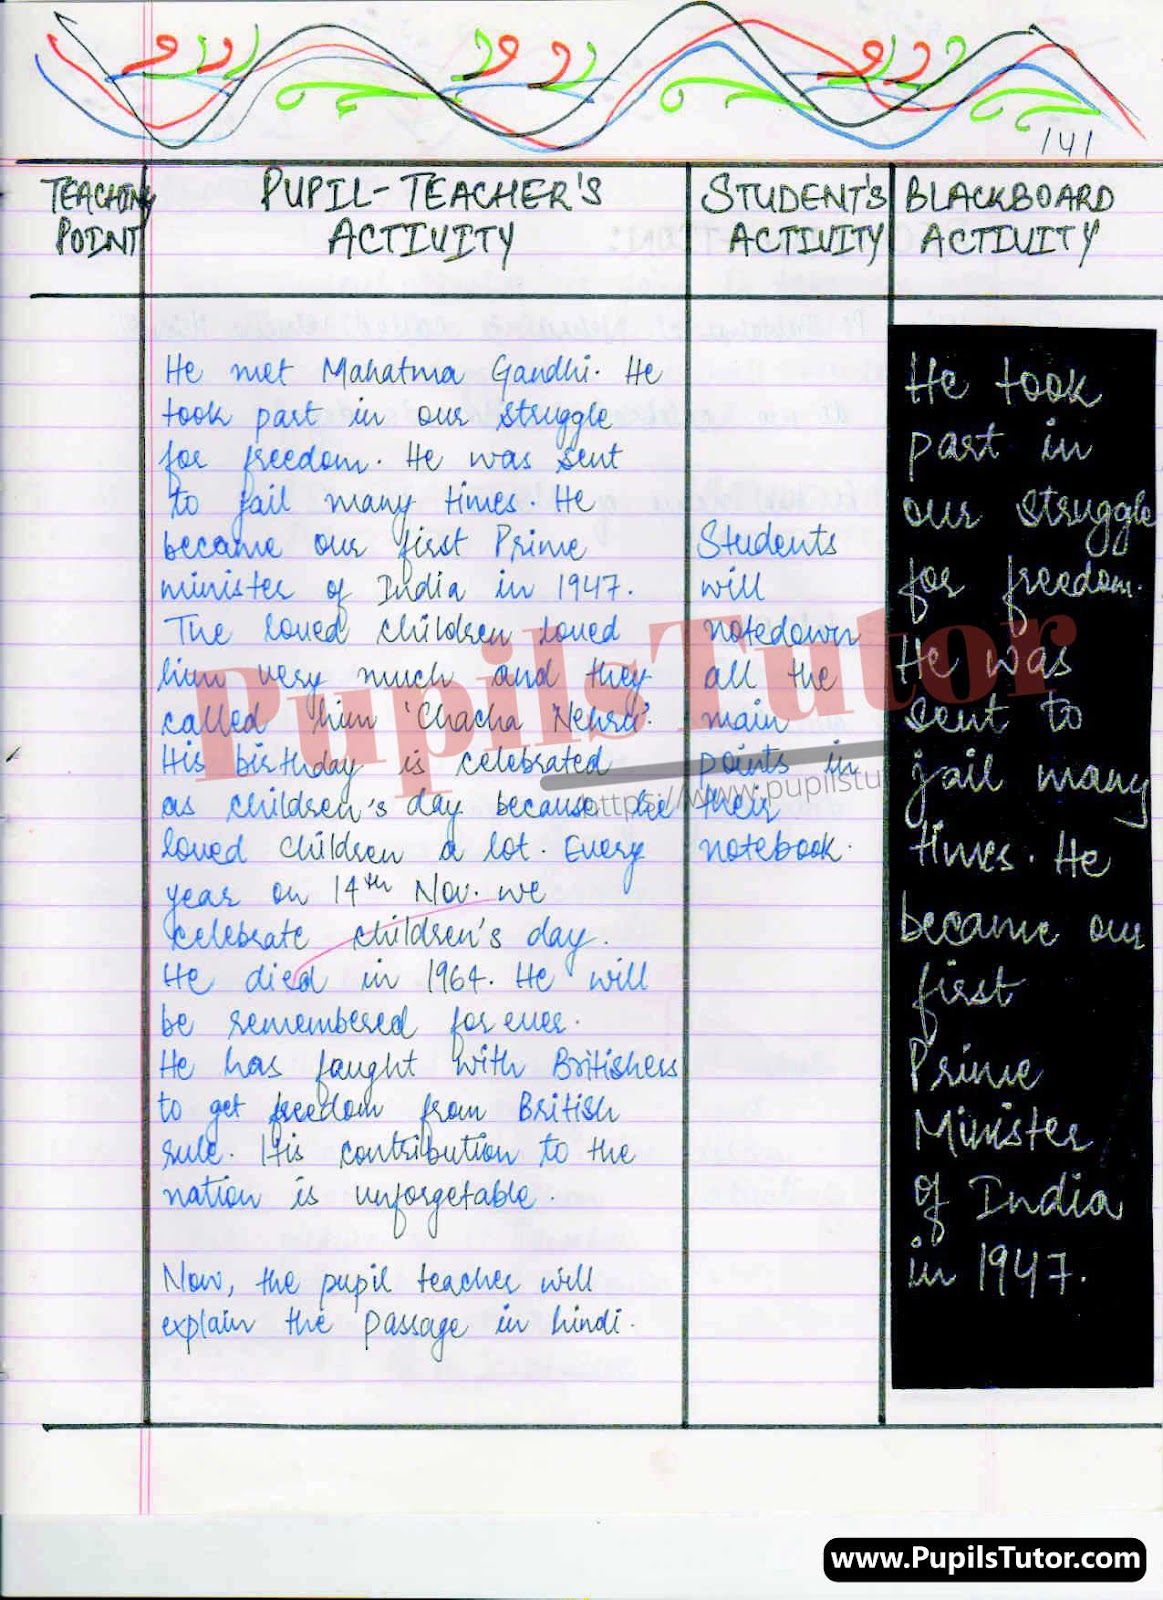 141
TEACHING POINT
PUPIL-TEACHER'S ACTIVITY
STUDENT'S ACTIVITY
BLACKBOARD ACTIVITY
He met Mahatma Gandhi. He
took part in our struggle
for freedom. He was sent
to jail many times. He
became our first Prime
minister of India in 1947.
The loved children loved
him very much and they
called him 'Chacha Nehru'.
His birthday is celebrated
as children's day because he
loved children a lot. Every
year on 14th Nov. we
celebrate children's day.
He died in 1964. He will
be remembered for ever.
He has faught with Britishers
to get freedom from British
rule. His contribution to the
nation is unforgetable.
Now, the pupil teacher will
explain the passage in hindi.
Students
will
notedown
all the
main
points in
their
notebook.
He took
part in
our struggle
for freedom.
He was
sent to
jail many
times. He
became our
first
Prime
Minister
of India
in 1947.
PupilsTutor
https://www.pupilstu
www.PupilsTutor.com